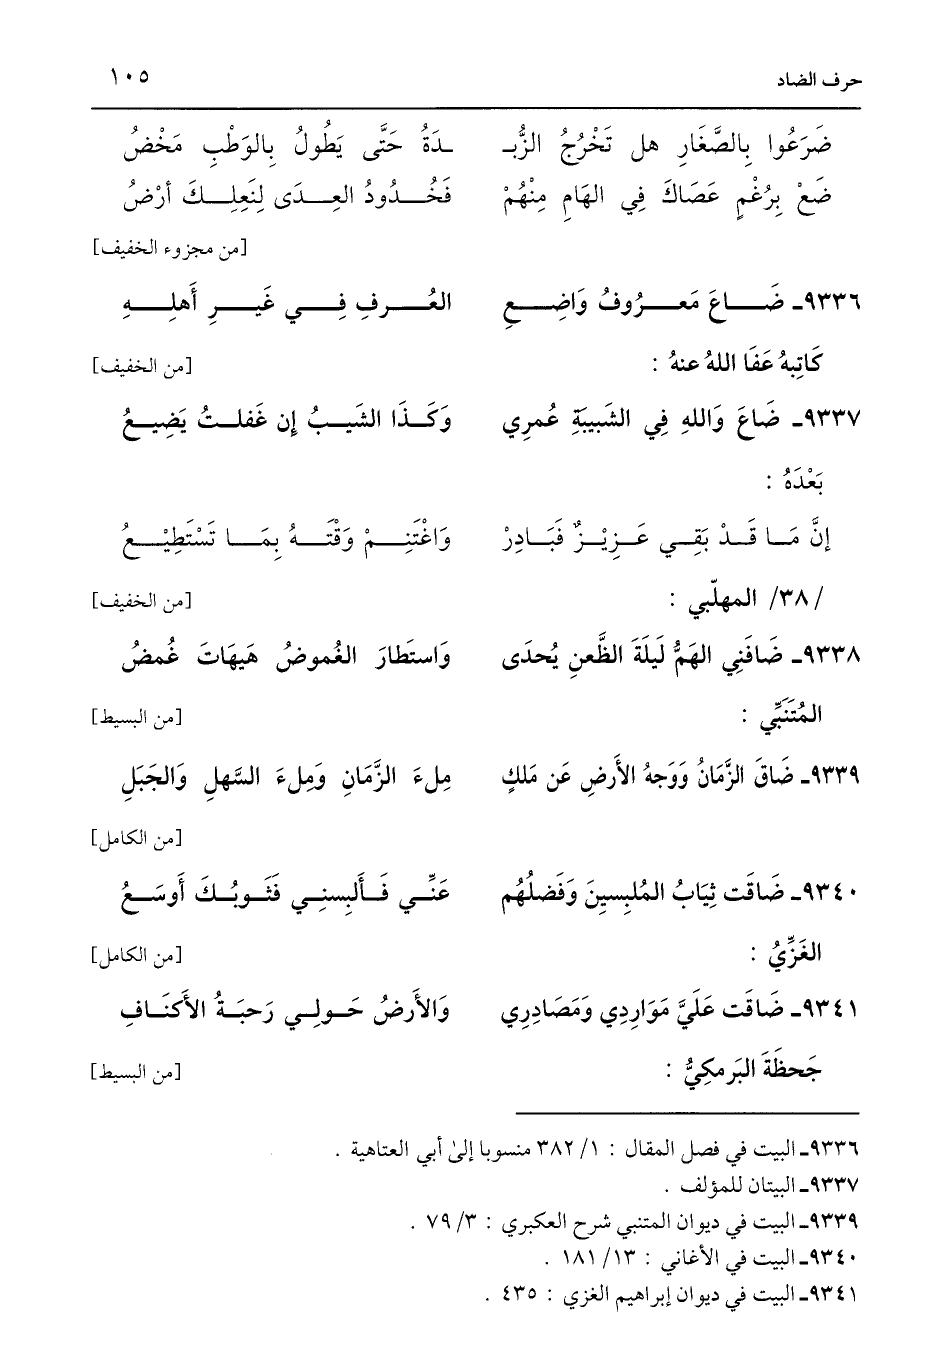 حرف الضاد ١٠٥
ضَرَعُوا بِالصَّغَارِ هل تَخْرُجُ الزُّبـ ـدَةُ حَتَّى يَطُولُ بِالوَطْبِ مَخْضُ
ضَعْ بِرُغْمٍ عَصَاكَ فِي الهَامِ مِنْهُمْ فَخُدُودُ العِدَى لِنَعلِكَ أرْضُ
[من مجزوء الخفيف]
٩٣٣٦ـ ضَاعَ مَعرُوفُ وَاضِعِ العُرفِ فِي غَيرِ أَهلِهِ
كَاتِبهُ عَفَا اللهُ عنهُ : [من الخفيف]
٩٣٣٧ـ ضَاعَ وَاللهِ فِي الشَبيبَةِ عُمرِي وَكَذَا الشَيبُ إن غَفلتُ يَضِيعُ
بَعْدَهُ :
إنَّ مَا قَدْ بَقِي عَزِيْزٌ فَبَادِرْ وَاغْتَنِمْ وَقْتَهُ بِمَا تَسْتَطِيْعُ
/٣٨/ المهلّبي : [من الخفيف]
٩٣٣٨ـ ضَافَنِي الهَمُّ لَيلَةَ الظَّعنِ يُحدَى وَاستَطارَ الغُموضُ هَيهَاتَ غُمضُ
المُتَنَبِّي : [من البسيط]
٩٣٣٩ـ ضَاقَ الزَّمَانُ وَوَجهُ الأَرضِ عَن مَلكٍ مِلءَ الزَّمَانِ وَمِلءَ السَّهلِ وَالجَبَلِ
[من الكامل]
٩٣٤٠ـ ضَاقَت ثِيَابُ المُلبِسينَ وَفَضلُهُم عَنِّي فَألبِسنِي فَثَوبُكَ أَوسَعُ
الغَزِّيُ : [من الكامل]
٩٣٤١ـ ضَاقَت عَلَيَّ مَوَارِدِي وَمَصَادِرِي وَالأَرضُ حَولِي رَحبَةُ الأَكنَافِ
جَحظَةَ البَرمكِيُّ : [من البسيط]
٩٣٣٦ـ البيت في فصل المقال : ١/ ٣٨٢ منسوبا إلىٰ أبي العتاهية .
٩٣٣٧ـ البيتان للمؤلف .
٩٣٣٩ـ البيت في ديوان المتنبي شرح العكبري : ٣/ ٧٩ .
٩٣٤٠ـ البيت في الأغاني : ١٣/ ١٨١ .
٩٣٤١ـ البيت في ديوان إبراهيم الغزي : ٤٣٥ .